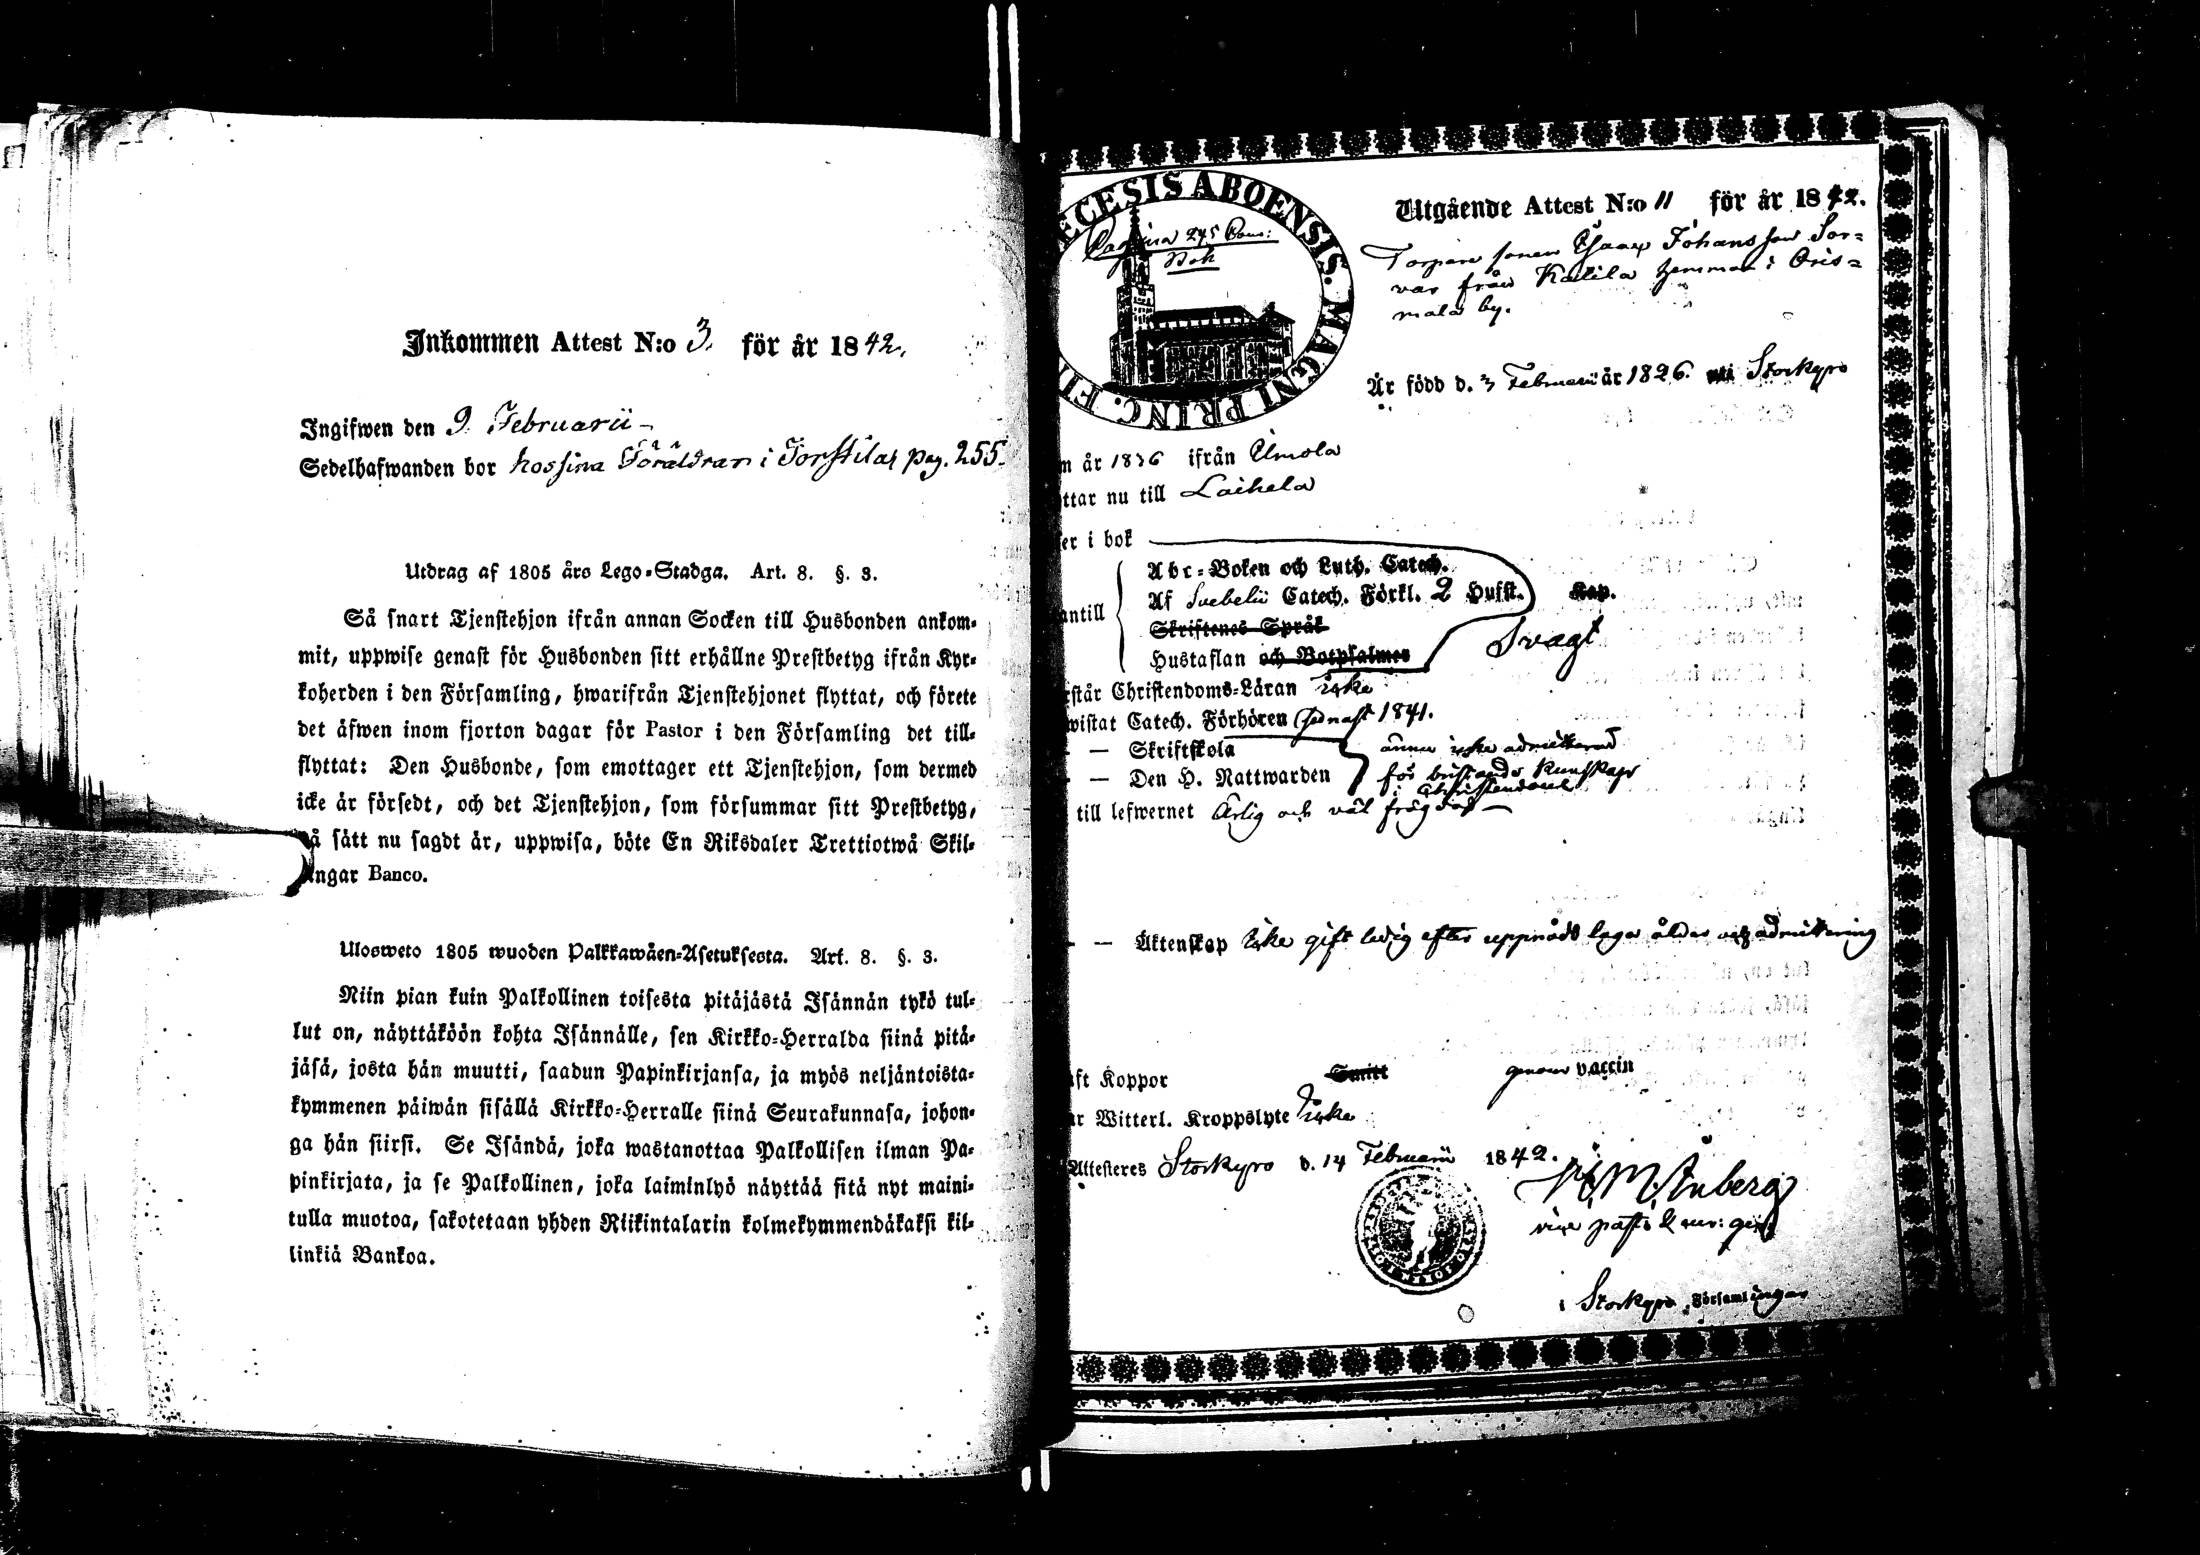 Inkommen Attest N:o 3. för år 1842.
Ingifwen den 9. Februarii –
Sedelhafwanden bor hos sina Föräldrar i Torstilas pag. 255.
Utdrag af 1805 års Lego-Stadga. Art. 8. §. 3.
Så snart Tjenstehjon ifrån annan Socken till Husbonden ankom-
mit, uppwise genast för Husbonden sitt erhållne Prestbetyg ifrån Kyr-
koherden i den Församling, hwarifrån Tjenstehjonet flyttat, och förete
det äfwen inom fjorton dagar för Pastor i den Församling det till-
flyttat: Den Husbonde, som emottager ett Tjenstehjon, som dermed
icke är försedt, och det Tjenstehjon, som försummar sitt Prestbetyg,
på sätt nu sagdt är, uppwisa, böte En Riksdaler Trettiotwå Skil-
lingar Banco.
Ulosweto 1805 wuoden Palkkawäen-Asetuksesta. Art. 8. §. 3.
Niin pian kuin Palkollinen toisesta pitäjästä Isännän tykö tul-
lut on, näyttäköön kohta Isännälle, sen Kirkko-Herralda siinä pitä-
jäsä, josta hän muutti, saadun Papinkirjansa, ja myös neljäntoista-
kymmenen päiwän sisällä Kirkko-Herralle siinä Seurakunnasa, johon-
ga hän siirsi. Se Isändä, joka wastanottaa Palkollisen ilman Pa-
pinkirjata, ja se Palkollinen, joka laiminlyö näyttää sitä nyt maini-
tulla muotoa, sakotetaan yhden Riikintalarin kolmekymmendäkaksi kil-
linkiä Bankoa.
ECESIS ABOENSIS. MAGNI PRINC. FI
Pagina 245 Com:
Bok
Utgående Attest N:o 11 för år 1842.
Torpare sonen Isaac Johansson Sor-
var från Kalila hemman i Oris-
mala by.
Är född d. 3 Februarii år 1826. i Storkyro
m år 1836 ifrån Ilmola
ttar nu till Laihela
er i bok
Abc-Boken och Luth. Catech.
Af Svebelii Catech. Förkl. 2 Hufst. Kap.
antill
Skriftenes Språk
Svagt
Hustaflan och Botpsalmer
rstår Christendoms-Läran icke
wistat Catech. Förhören sednast 1841.
– Skriftskola ännu icke admitterad
– – Den H. Nattwarden för bristande kunskaper
i Christendomen
till lefwernet Ärlig och väl frägdad –
– – Äktenskap icke gift ledig efter uppnådd laga ålder och admittering
aft Koppor Smitt genom vaccin
ar Witterl. Kroppslyte icke
Attesteres Storkyro d. 14 Februarii 1842.
vice pastor
i Storkyro Församlingar